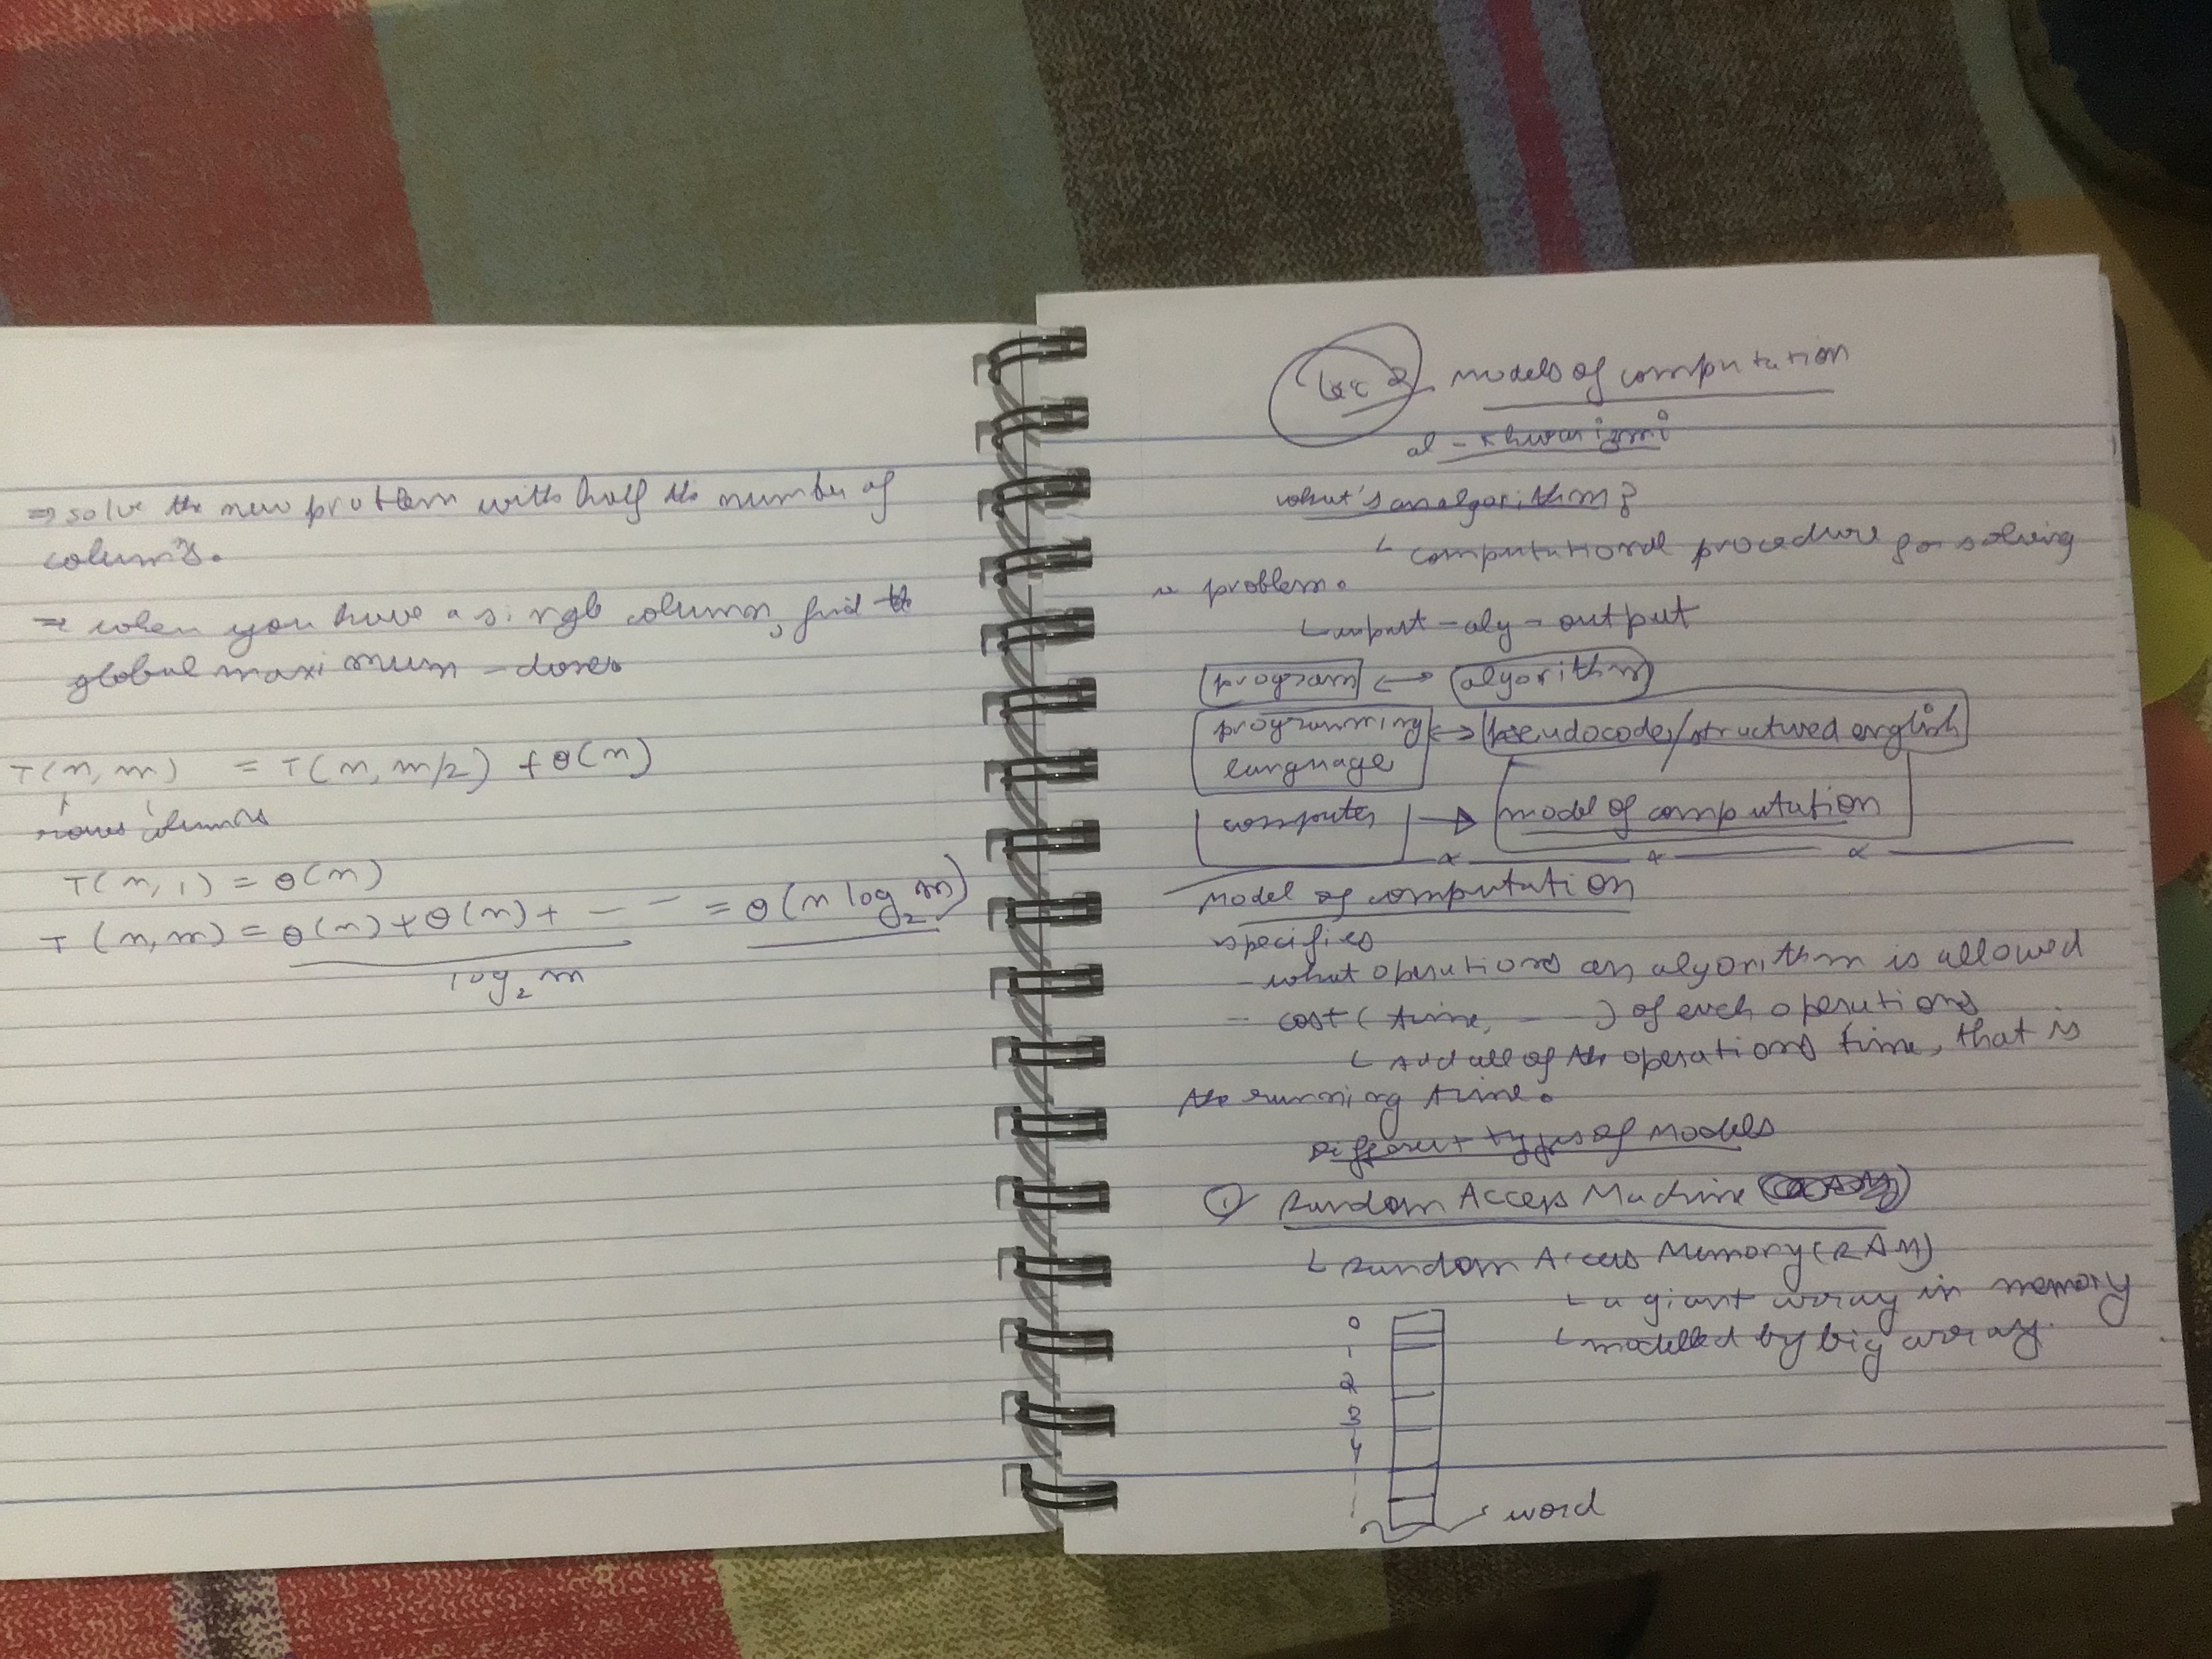 ⇒ solve the new problem with half the number of
columns.
⇒ when you have a single column, find the
global maximum - done
T(n, m) = T(n, m/2) + Θ(n)
rows columns
T(n, 1) = Θ(n)
T(n, m) = Θ(n) + Θ(n) + - - = Θ(n log₂ m)
log₂ m
Lec 2 Models of computation
al-khwarizmi
what's an algorithm?
└ computational procedure for solving
a problem.
└ input - alg - output
program ↔ algorithm
programming ↔ pseudocode/structured english
language
computer → model of computation
Model of computation
specifies
- what operations an algorithm is allowed
- cost (time, - - -) of each operations
└ add all of the operations time, that is
the running time.
Different types of Models
① Random Access Machine
└ Random Access Memory (RAM)
└ a giant array in memory
└ modelled by big array.
0
1
2
3
4
word